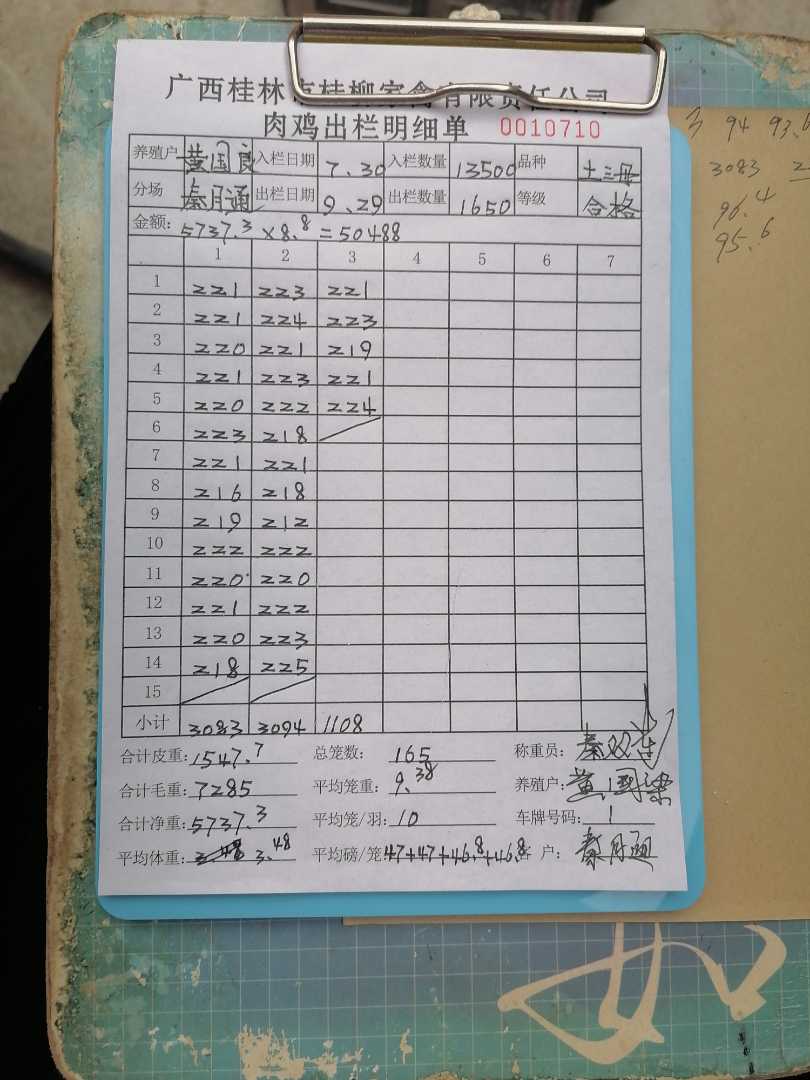 广西桂林市桂柳家禽有限责任公司
肉鸡出栏明细单 0010710
养殖户 黄国良 入栏日期 7.30 入栏数量 13500 品种 土三册
分场 秦月通 出栏日期 9.29 出栏数量 1650 等级 合格
金额: 5737.3×8.8=50488
1 2 3 4 5 6 7
1 221 223 221
2 221 224 223
3 220 221 219
4 221 223 221
5 220 222 224
6 223 218
7 221 221
8 216 218
9 219 212
10 222 222
11 220 220
12 221 222
13 220 223
14 218 225
15
小计 3083 3094 1108
合计皮重: 1547.7 总笼数: 165 称重员: 秦双
合计毛重: 7285 平均笼重: 9.38 养殖户: 黄国梁
合计净重: 5737.3 平均笼/羽: 10 车牌号码: 1
平均体重: 3.48 3.48 平均磅/笼 47+47+46.8+46.8 客 户: 秦月通
94 93.6
3083
96.4
95.6
如